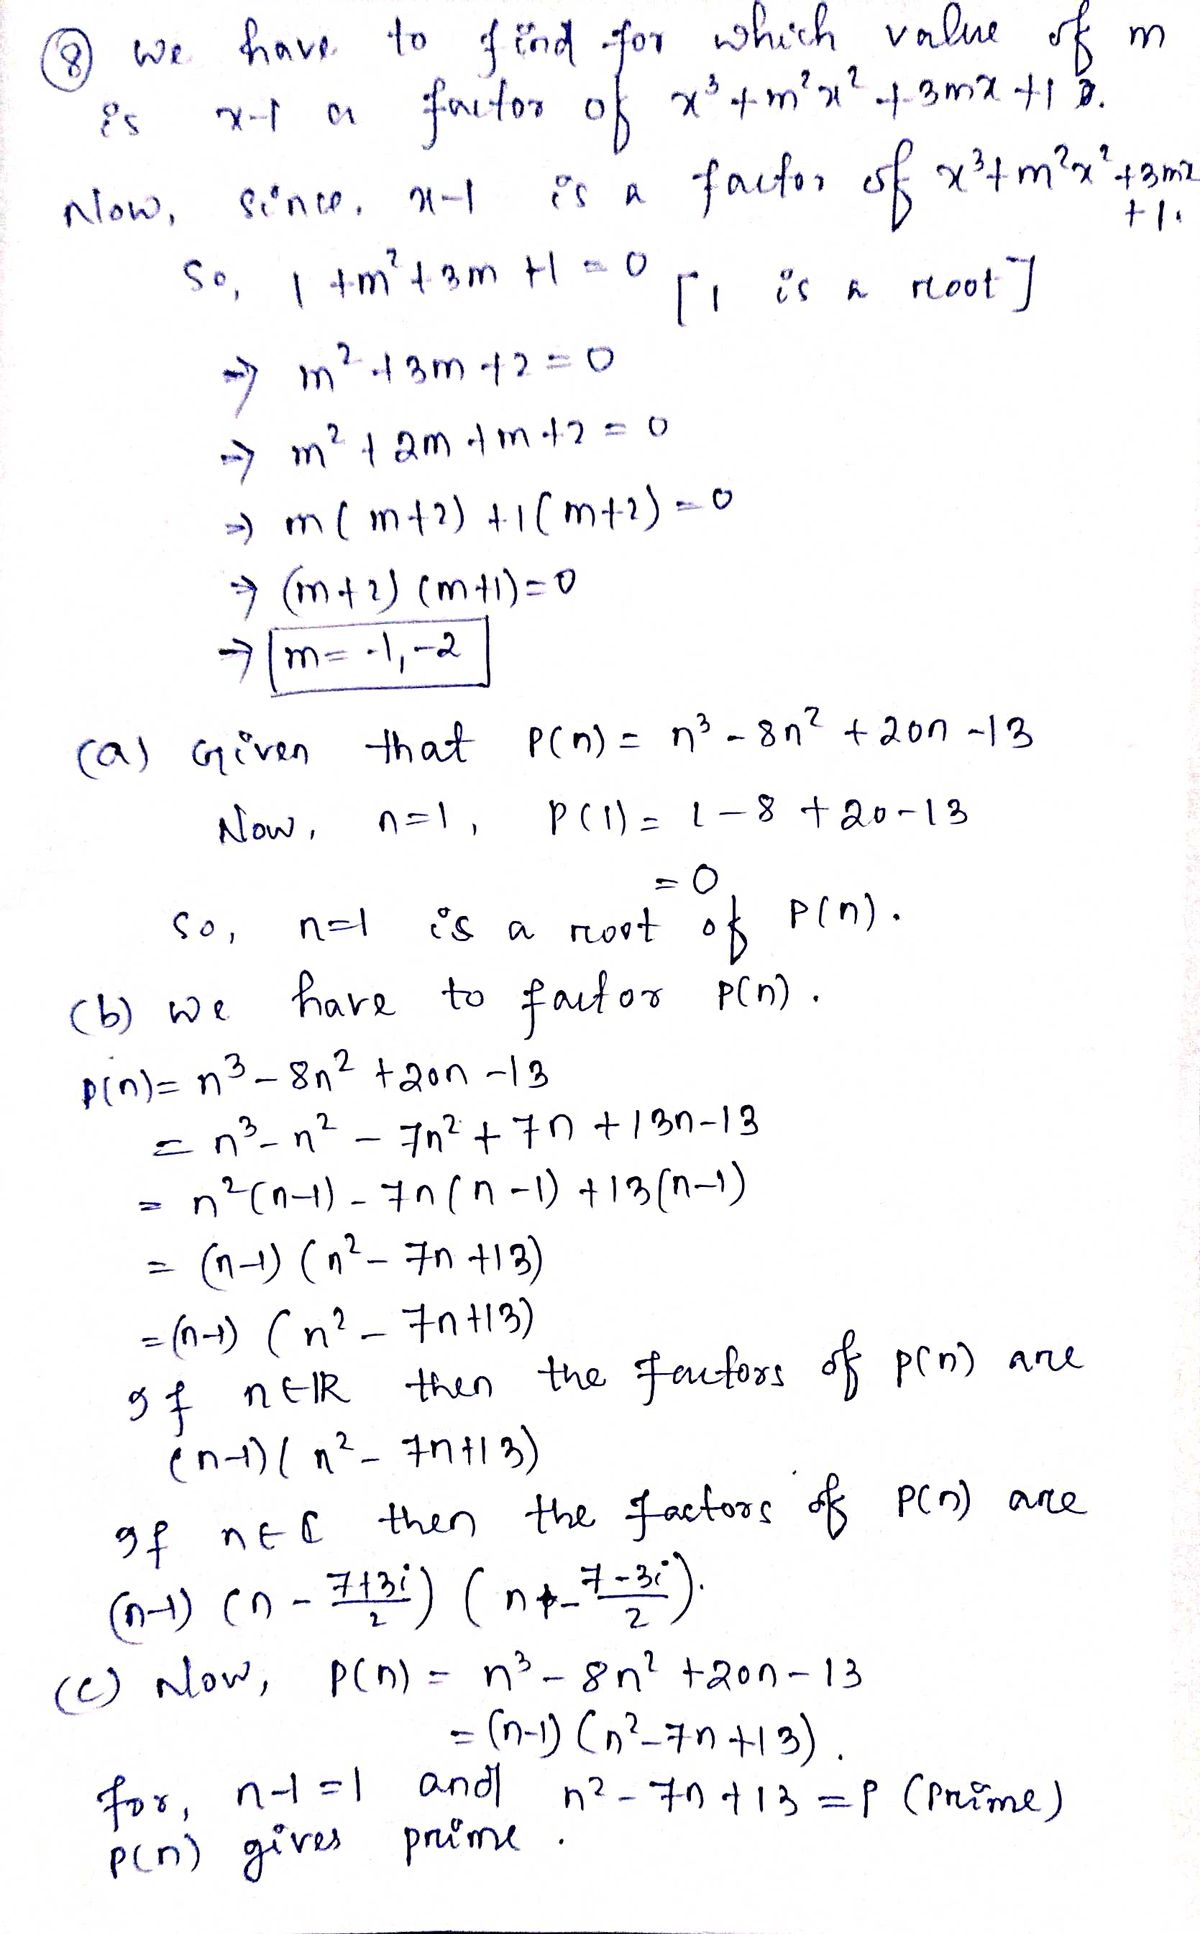 ⑧ we have to find for which value of m
is x-1 a factor of x³+m²x²+3mx+1.
Now, since, x-1 is a factor of x³+m²x²+3mx
+1.
So, 1+m²+3m+1=0 [1 is a root]
⇒ m²+3m+2=0
⇒ m²+2m+m+2=0
⇒ m(m+2)+1(m+2)=0
⇒ (m+2)(m+1)=0
⇒ m=-1,-2
(a) Given that P(n) = n³-8n²+20n-13
Now, n=1, P(1) = 1-8+20-13
=0
So, n=1 is a root of P(n).
(b) we have to factor P(n).
P(n)= n³-8n²+20n-13
= n³-n²-7n²+7n+13n-13
= n²(n-1)-7n(n-1)+13(n-1)
= (n-1)(n²-7n+13)
=(n-1)(n²-7n+13)
If n∈ℝ then the factors of P(n) are
(n-1)(n²-7n+13)
If n∈ℂ then the factors of P(n) are
(n-1)(n-\frac{7+3i}{2})(n-\frac{7-3i}{2}).
(c) Now, P(n) = n³-8n²+20n-13
=(n-1)(n²-7n+13).
for, n-1=1 and n²-7n+13=P (Prime)
P(n) gives prime.